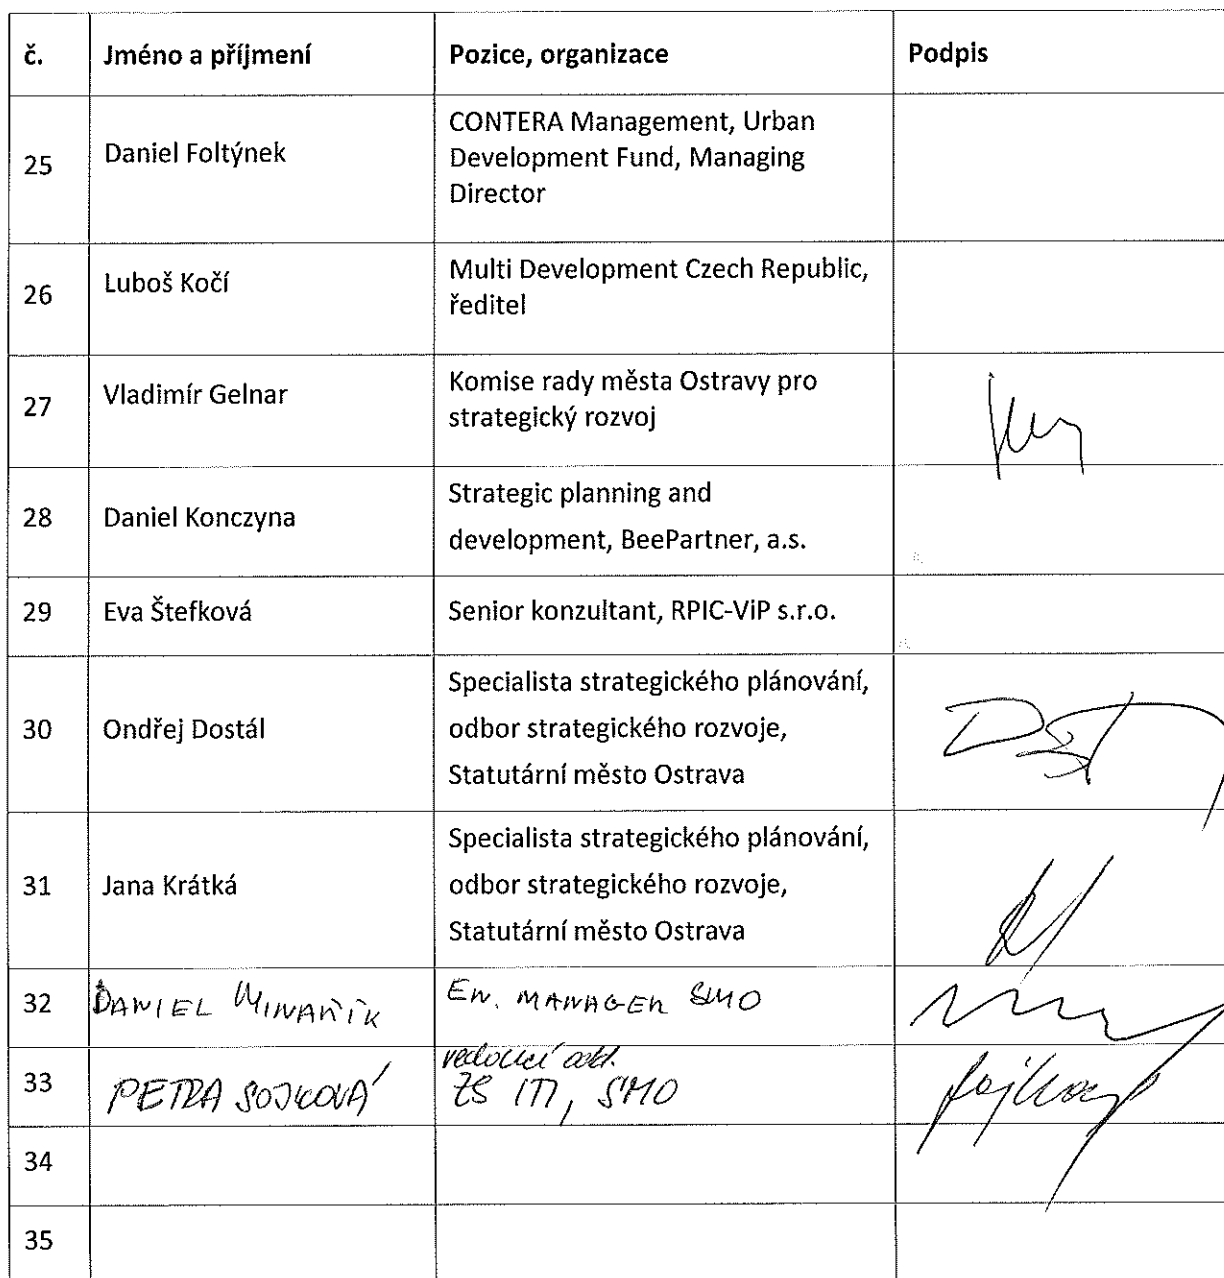 č. Jméno a příjmení Pozice, organizace Podpis
25 Daniel Foltýnek CONTERA Management, Urban
Development Fund, Managing
Director
26 Luboš Kočí Multi Development Czech Republic,
ředitel
27 Vladimír Gelnar Komise rady města Ostravy pro
strategický rozvoj
28 Daniel Konczyna Strategic planning and
development, BeePartner, a.s.
29 Eva Štefková Senior konzultant, RPIC-ViP s.r.o.
30 Ondřej Dostál Specialista strategického plánování,
odbor strategického rozvoje,
Statutární město Ostrava
31 Jana Krátká Specialista strategického plánování,
odbor strategického rozvoje,
Statutární město Ostrava
32 DANIEL MINAŘÍK EN. MANAGER SMO
33 PETRA SOJKOVÁ vedoucí odd.
ZS ITI, SMO
34
35